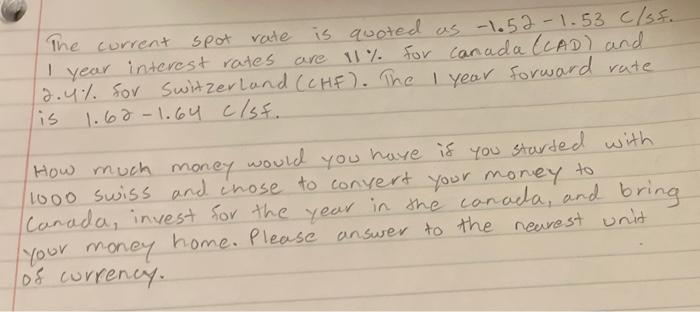 The current spot rate is quoted as -1.52-1.53 C/sf.
1 year interest rates are 11% for Canada (CAD) and
2.4% for Switzerland (CHF). The 1 year forward rate
is 1.62-1.64 C/sf.
How much money would you have if you started with
1000 swiss and chose to convert your money to
Canada, invest for the year in the canada, and bring
your money home. Please answer to the nearest unit
of currency.